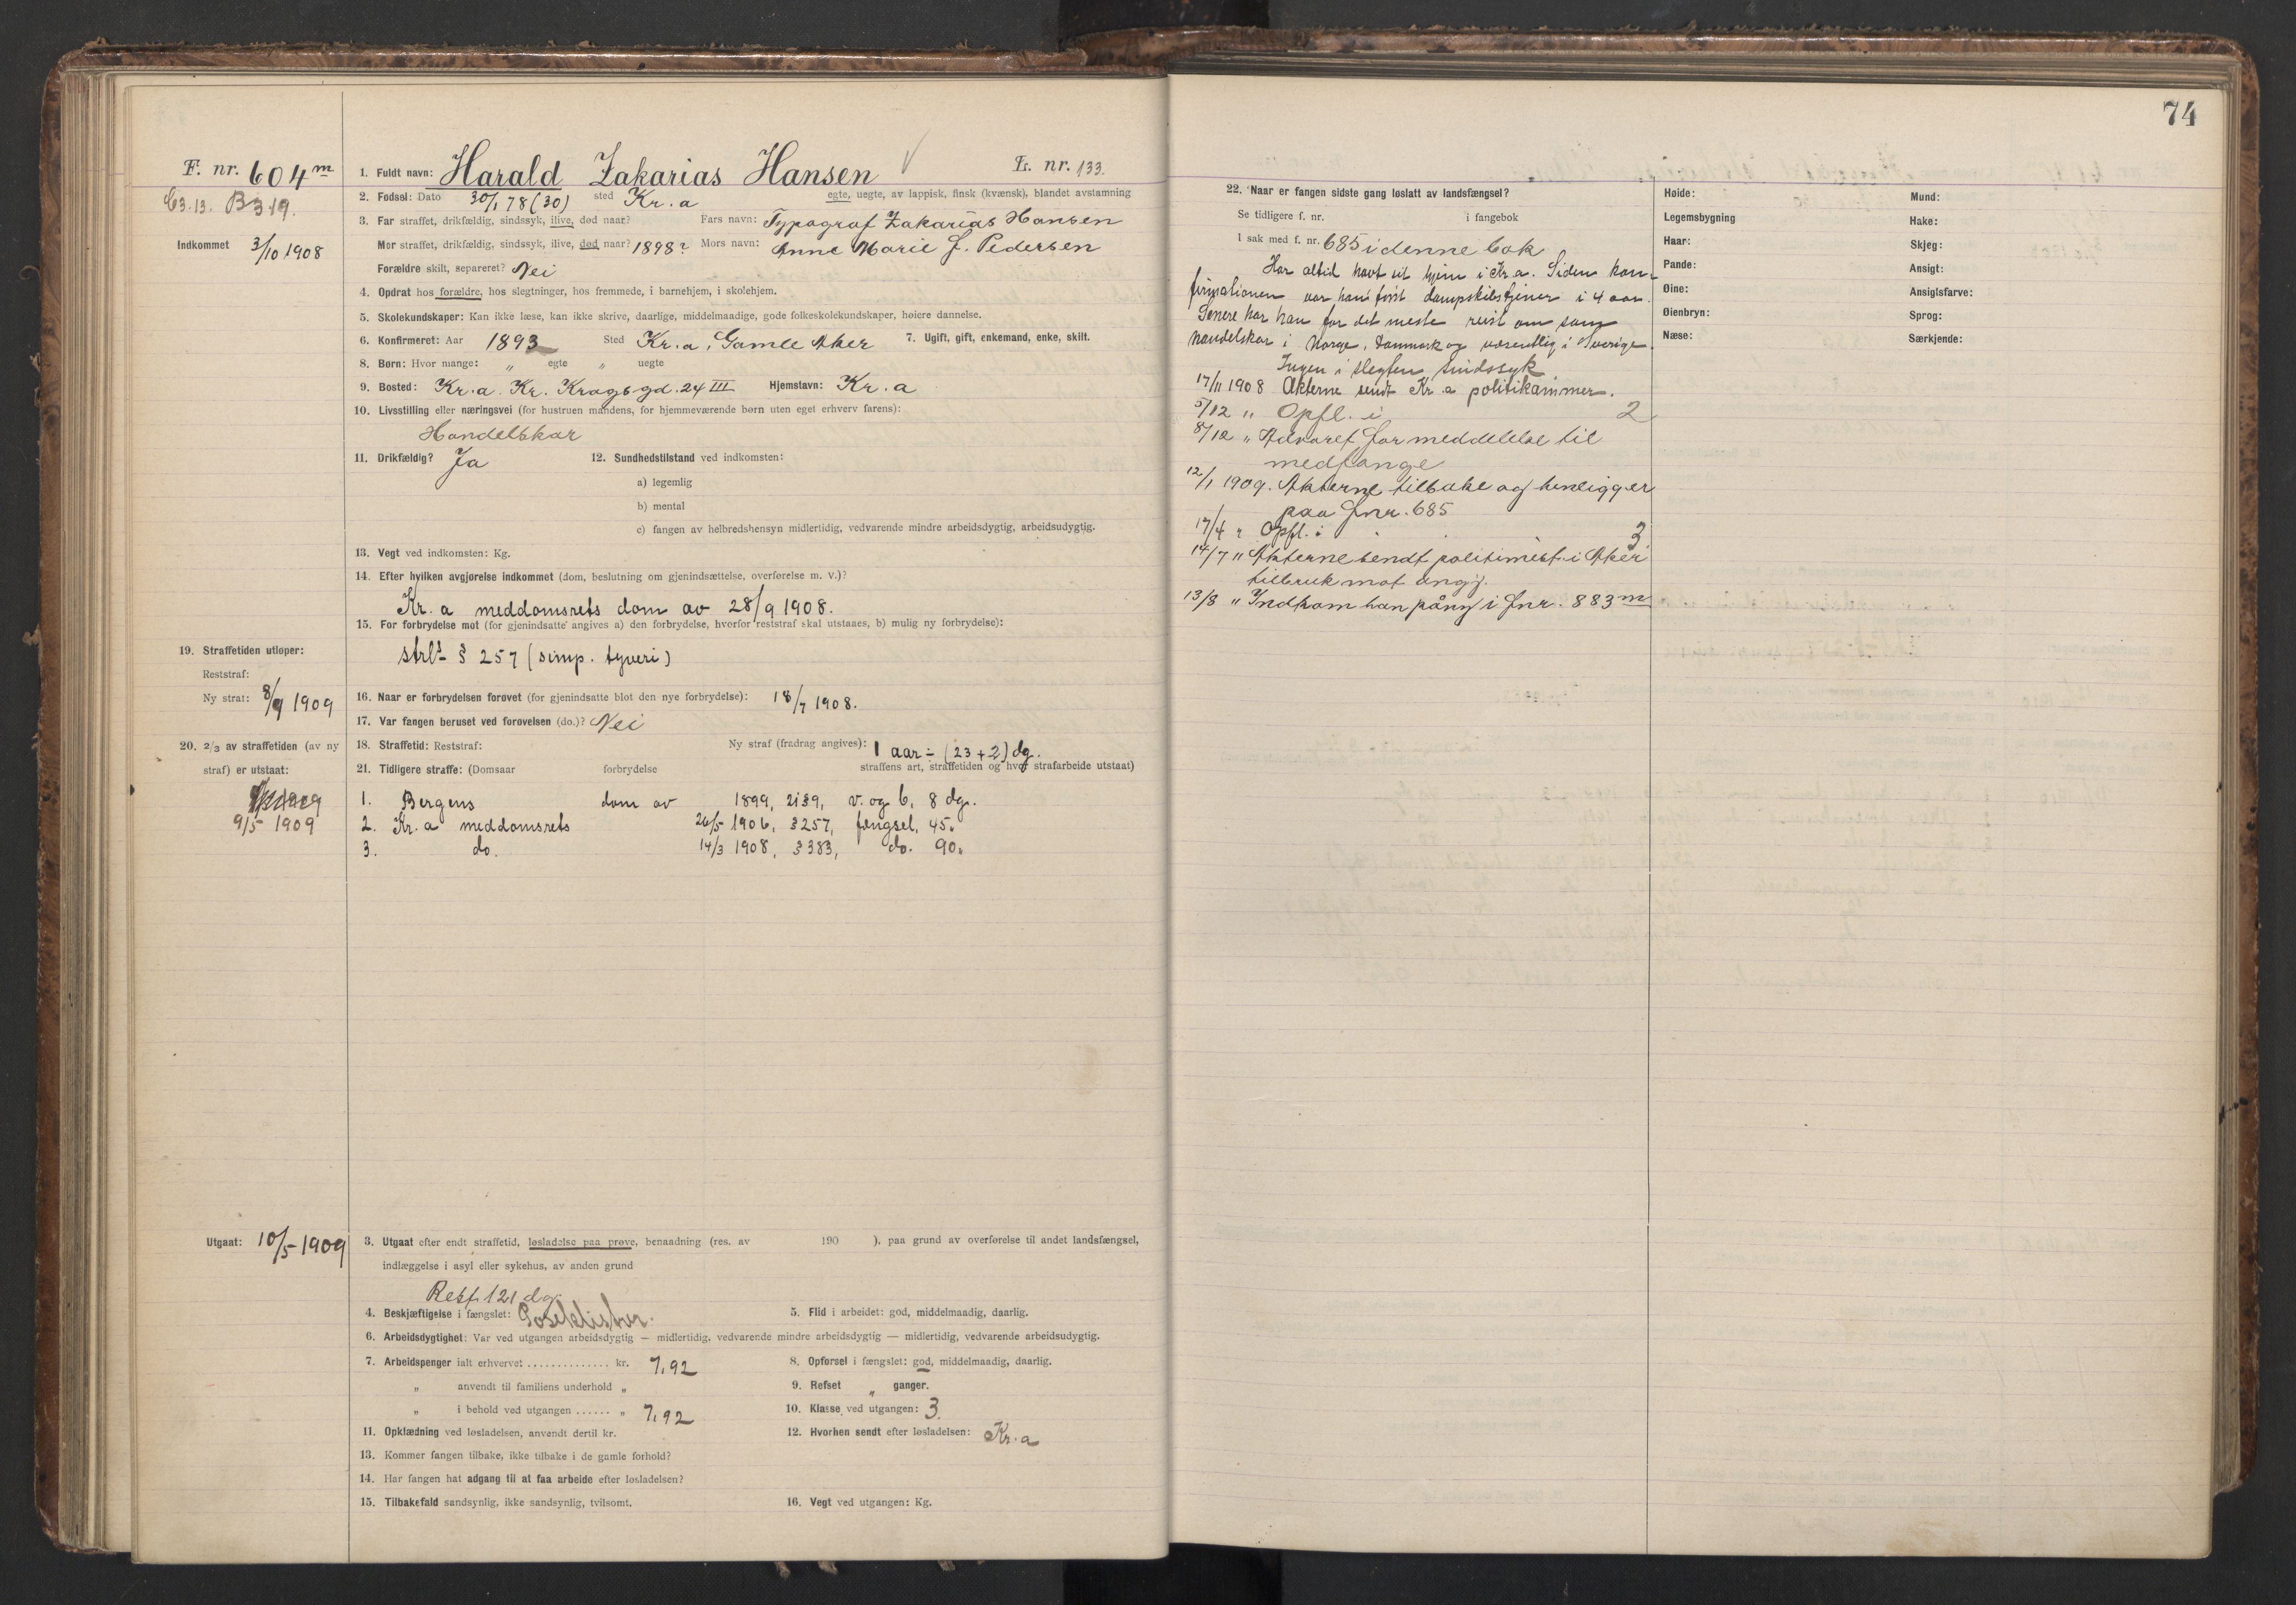 74
F. nr. 604 m
C3.13. B319.
Indkommet 3/10 1908
1. Fuldt navn: Harald Zakarias Hansen V L. nr. 133.
2. Fødsel: Dato 30/1 78 (30) sted Kr.a egte, uegte, av lappisk, finsk (kvænsk), blandet avstamning
3. Far straffet, drikfældig, sindssyk, ilive, død naar? Fars navn: Typograf Zakarias Hansen
Mor straffet, drikfældig, sindssyk, ilive, død naar? 1898? Mors navn: Anne Marie f. Pedersen
Forældre skilt, separeret? Nei
4. Opdrat hos forældre, hos slegtninger, hos fremmede, i barnehjem, i skolehjem.
5. Skolekundskaper: Kan ikke læse, kan ikke skrive, daarlige, middelmaadige, gode folkeskolekundskaper, høiere dannelse.
6. Konfirmeret: Aar 1893 Sted Kr.a, Gamle Aker 7. Ugift, gift, enkemand, enke, skilt.
8. Børn: Hvor mange: " egte " uegte
9. Bosted: Kr.a. Kr. Krogs gd. 24 III Hjemstavn: Kr.a
10. Livsstilling eller næringsvei (for hustruen mandens, for hjemmeværende børn uten eget erhverv farens):
Handelskar
11. Drikfældig? Ja 12. Sundhedstilstand ved indkomsten:
a) legemlig
b) mental
c) fangen av helbredshensyn midlertidig, vedvarende mindre arbeidsdygtig, arbeidsudygtig.
13. Vegt ved indkomsten: Kg.
14. Efter hvilken avgjørelse indkommet (dom, beslutning om gjenindsættelse, overførelse m. v.)?
Kr.a meddomsrets dom av 28/9 1908.
15. For forbrydelse mot (for gjenindsatte angives a) den forbrydelse, hvorfor reststraf skal utstaaes, b) mulig ny forbrydelse):
strl. § 257 (simp. tyveri)
19. Straffetiden utløper:
Reststraf:
Ny straf: 8/9 1909
16. Naar er forbrydelsen forøvet (for gjenindsatte blot den nye forbrydelse): 18/7 1908.
17. Var fangen beruset ved forøvelsen (do.)? Nei
20. 2/3 av straffetiden (av ny
straf) er utstaat:
9/5 1909
18. Straffetid: Reststraf: Ny straf (fradrag angives): 1 aar ÷ (23+2) dg.
21. Tidligere straffe: (Domsaar forbrydelse straffens art, straffetiden og hvor strafarbeide utstaat)
1. Bergens dom av 1899, 21§9, v. og b, 8 dg.
2. Kr.a meddomsrets 26/5 1906, § 257, fængsel, 45.
3. do. 14/3 1908, § 383, do. 90.
Utgaat: 10/5 1909
3. Utgaat efter endt straffetid, løsladelse paa prøve, benaadning (res. av 190 ), paa grund av overførelse til andet landsfængsel,
indlæggelse i asyl eller sykehus, av anden grund
Rest. 121 dg.
4. Beskjæftigelse i fængslet: Poseklistrer. 5. Flid i arbeidet: god, middelmaadig, daarlig.
6. Arbeidsdygtighet: Var ved utgangen arbeidsdygtig — midlertidig, vedvarende mindre arbeidsdygtig — midlertidig, vedvarende arbeidsudygtig.
7. Arbeidspenger ialt erhvervet .............. kr. 7,92 8. Opførsel i fængslet: god, middelmaadig, daarlig.
" anvendt til familiens underhold " 9. Refset " ganger.
" i behold ved utgangen ...... " 7,92 10. Klasse ved utgangen: 3.
11. Opklædning ved løsladelsen, anvendt dertil kr. 12. Hvorhen sendt efter løsladelsen: Kr.a
13. Kommer fangen tilbake, ikke tilbake i de gamle forhold?
14. Har fangen hat adgang til at faa arbeide efter løsladelsen?
15. Tilbakefald sandsynlig, ikke sandsynlig, tvilsomt. 16. Vegt ved utgangen: Kg.
22. Naar er fangen sidste gang løslatt av landsfængsel?
Se tidligere f. nr. i fangebok
I sak med f. nr. 685 i denne bok
Har altid havt sit hjem i Kr.a. Siden kon-
firmationen var han først dampskibstjener i 4 aar.
Senere har han for det meste reist om som
handelskar i Norge, Danmark og væsentlig i Sverige.
Ingen i slegten sindssyk
17/11 1908 Akterne sendt Kr.a politikammer.
5/12 " Opfl. i 2
8/12 " Advaret for meddelelse til
medfange
12/1 1909. Akterne tilbake og henligger
paa fnr. 685
17/4 " Opfl. i 3
14/7 " Akterne sendt politimest. i Aker
til bruk mot angj.
13/8 " Indkom han påny i fnr. 883 m
Høide:
Legemsbygning
Haar:
Pande:
Øine:
Øienbryn:
Næse:
Mund:
Hake:
Skjeg:
Ansigt:
Ansigtsfarve:
Sprog:
Særkjende: